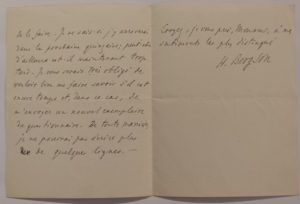 de le faire. Je ne sais si j'y arriverai
dans la prochaine quinzaine ; peut-être
d'ailleurs est-il maintenant trop
tard. Je vous serais très obligé de
vouloir bien me faire savoir s'il est
encore temps et, dans ce cas, de
m'envoyer un nouvel exemplaire
du questionnaire. De toute manière,
je ne pourrai pas écrire plus
de quelques lignes. —
Croyez, je vous prie, Monsieur, à mes
sentiments les plus distingués
H. Bergson